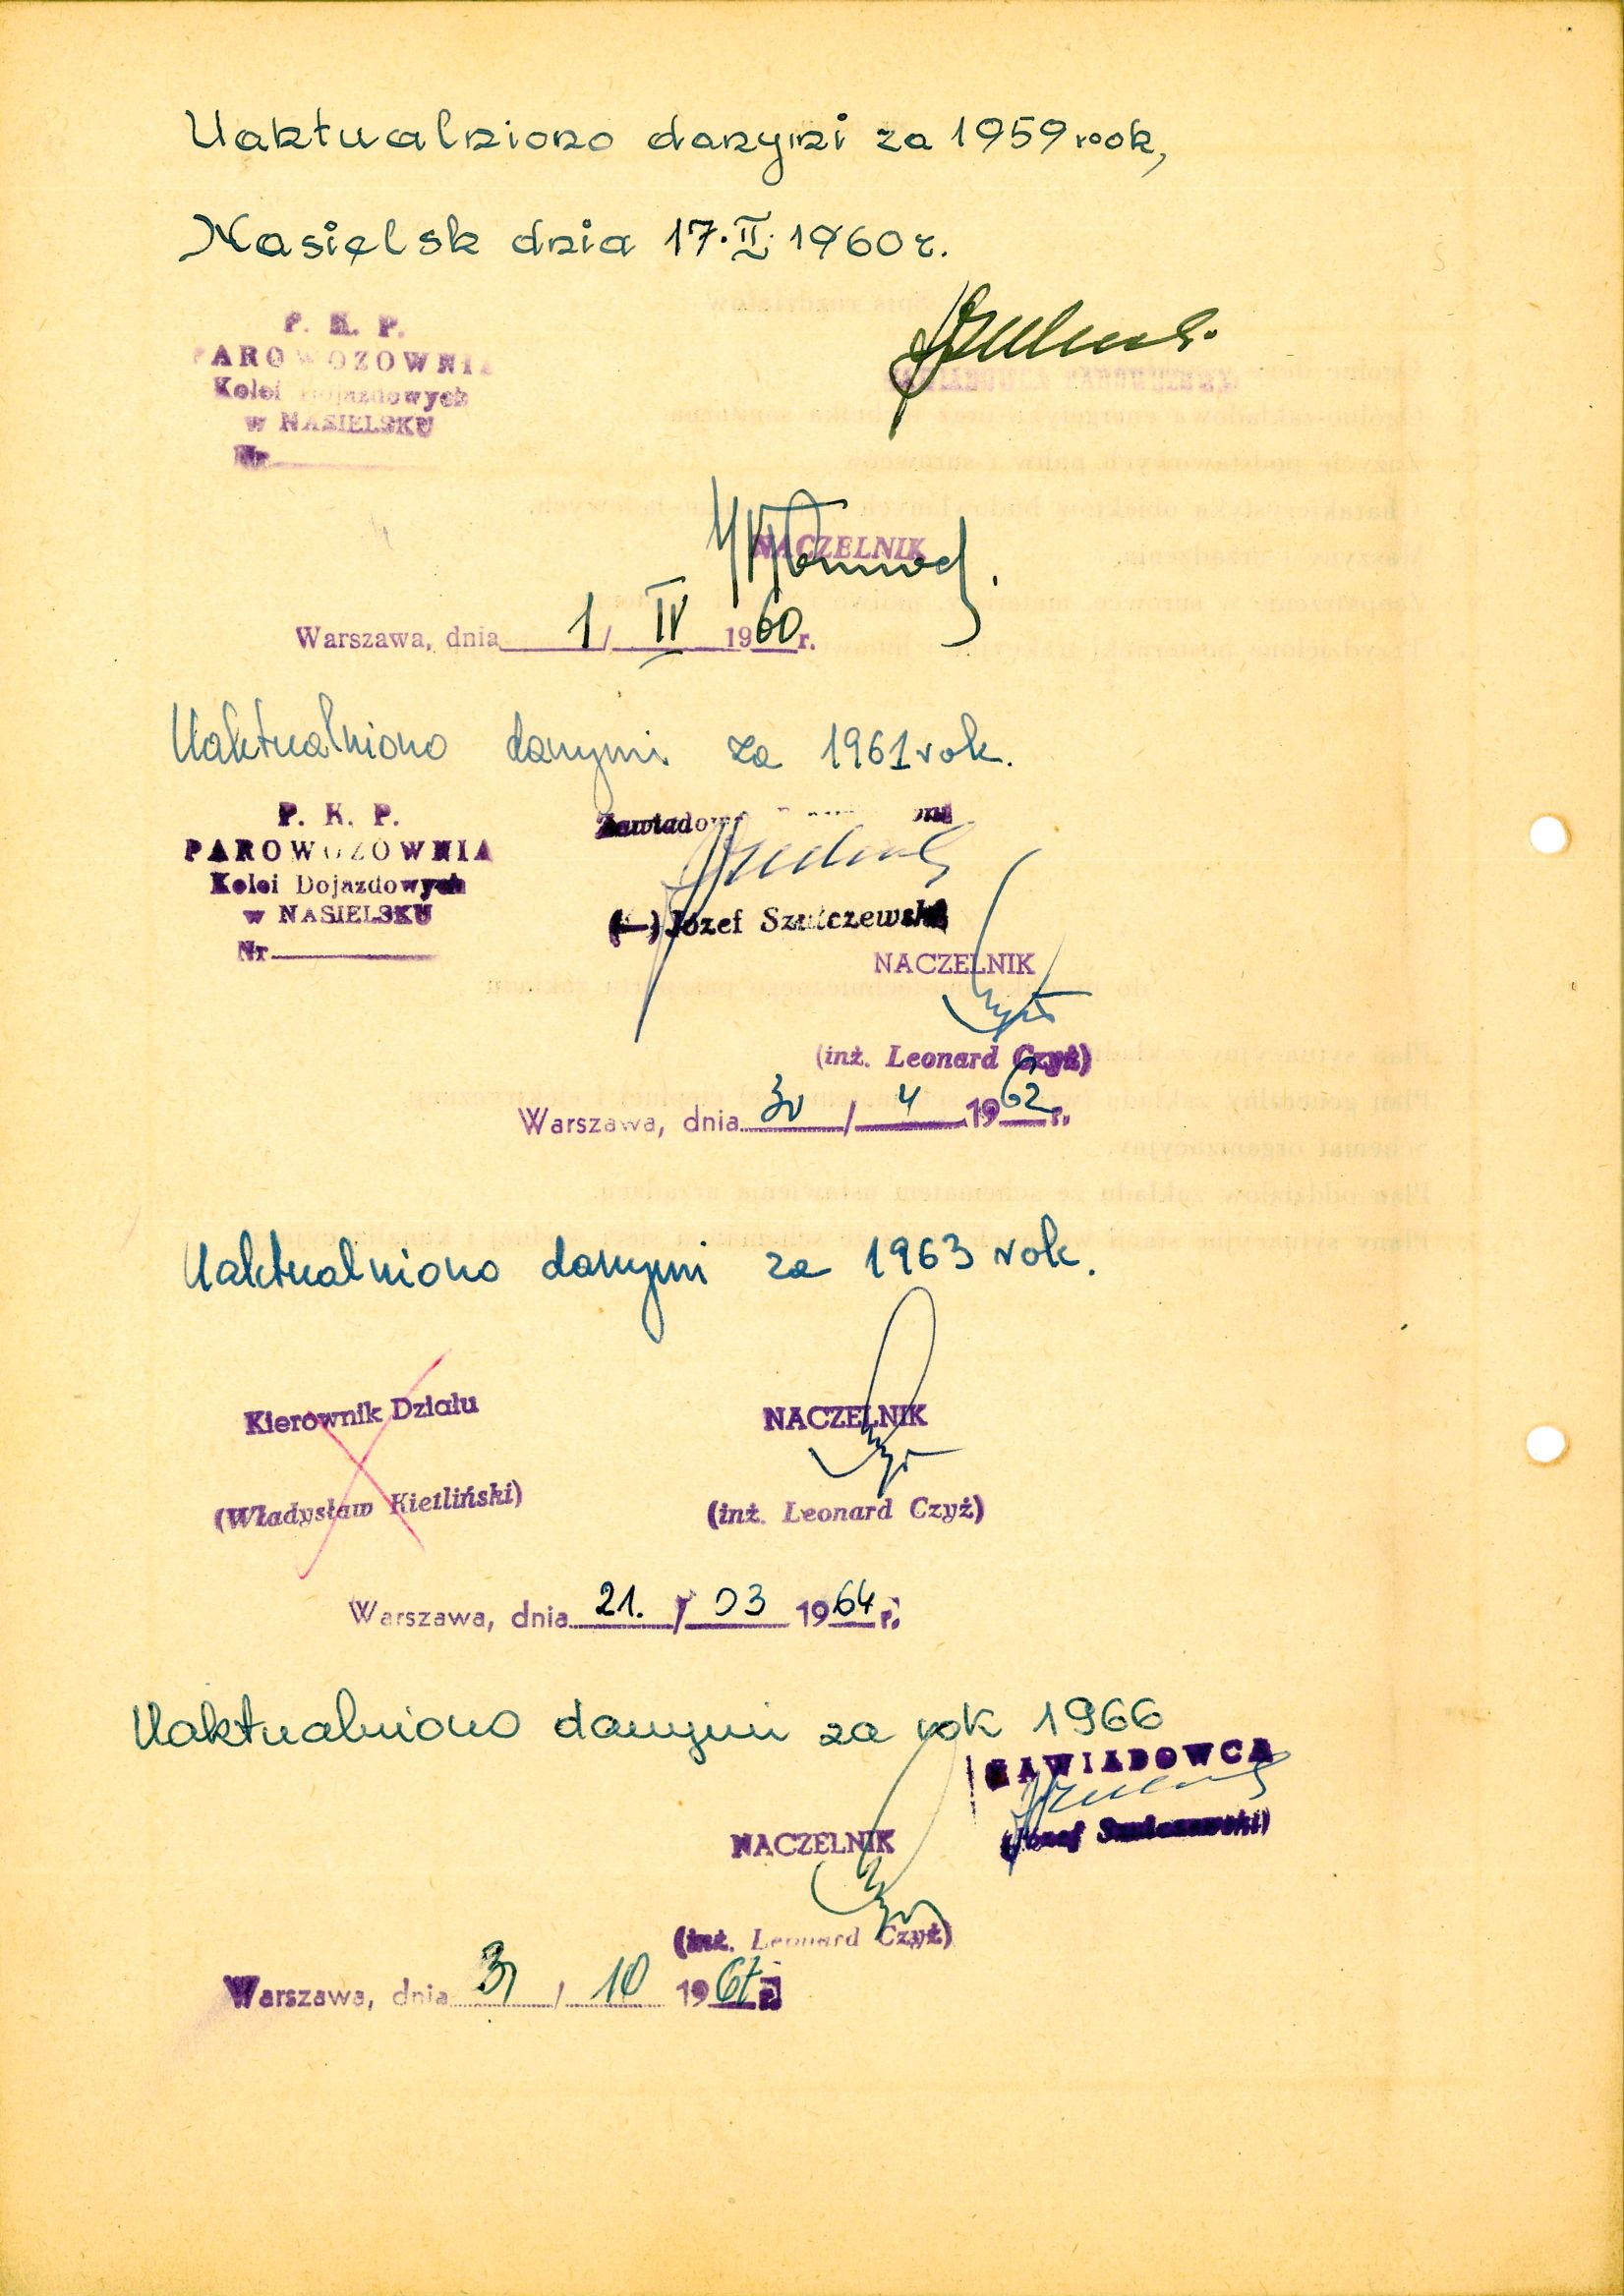 Uaktualniono danymi za 1959 rok,
Nasielsk dnia 17.II.1960 r.
P. K. P.
PAROWOZOWNIA
Kolei Dojazdowych
w NASIELSKU
Nr
ZAWIADOWCA PAROWOZOWNI
NACZELNIK
Warszawa, dnia 1 / IV 1960 r.
Uaktualniono danymi za 1961 rok.
P. K. P.
PAROWOZOWNIA
Kolei Dojazdowych
w NASIELSKU
Nr
Zawiadow
(—) Józef Szulczewski
NACZELNIK
(inż. Leonard Czyż)
Warszawa, dnia 30 / 4 1962 r.
Uaktualniono danymi za 1963 rok.
Kierownik Działu
(Władysław Kietliński)
NACZELNIK
(inż. Leonard Czyż)
Warszawa, dnia 21. / 03 1964 r.
Uaktualniono danymi za rok 1966
ZAWIADOWCA
(Józef Szulczewski)
NACZELNIK
(inż. Leonard Czyż)
Warszawa, dnia 31 / 10 1967 r.